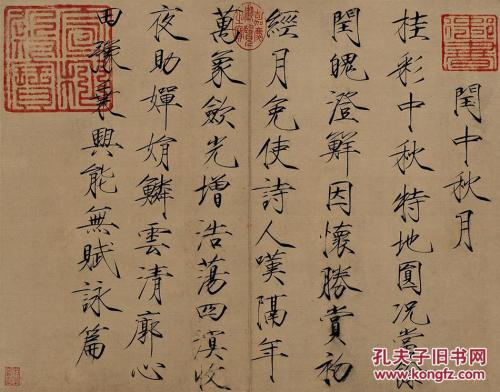 閏中秋月
桂彩中秋特地圓況當餘
閏魄澄鮮因懷勝賞初
經月免使詩人嘆隔年
萬象歛光增浩蕩四溟收
夜助嬋娟鱗雲清廓心
田豫乘興能無賦詠篇
御書
孔夫子旧书网
www.kongfz.com